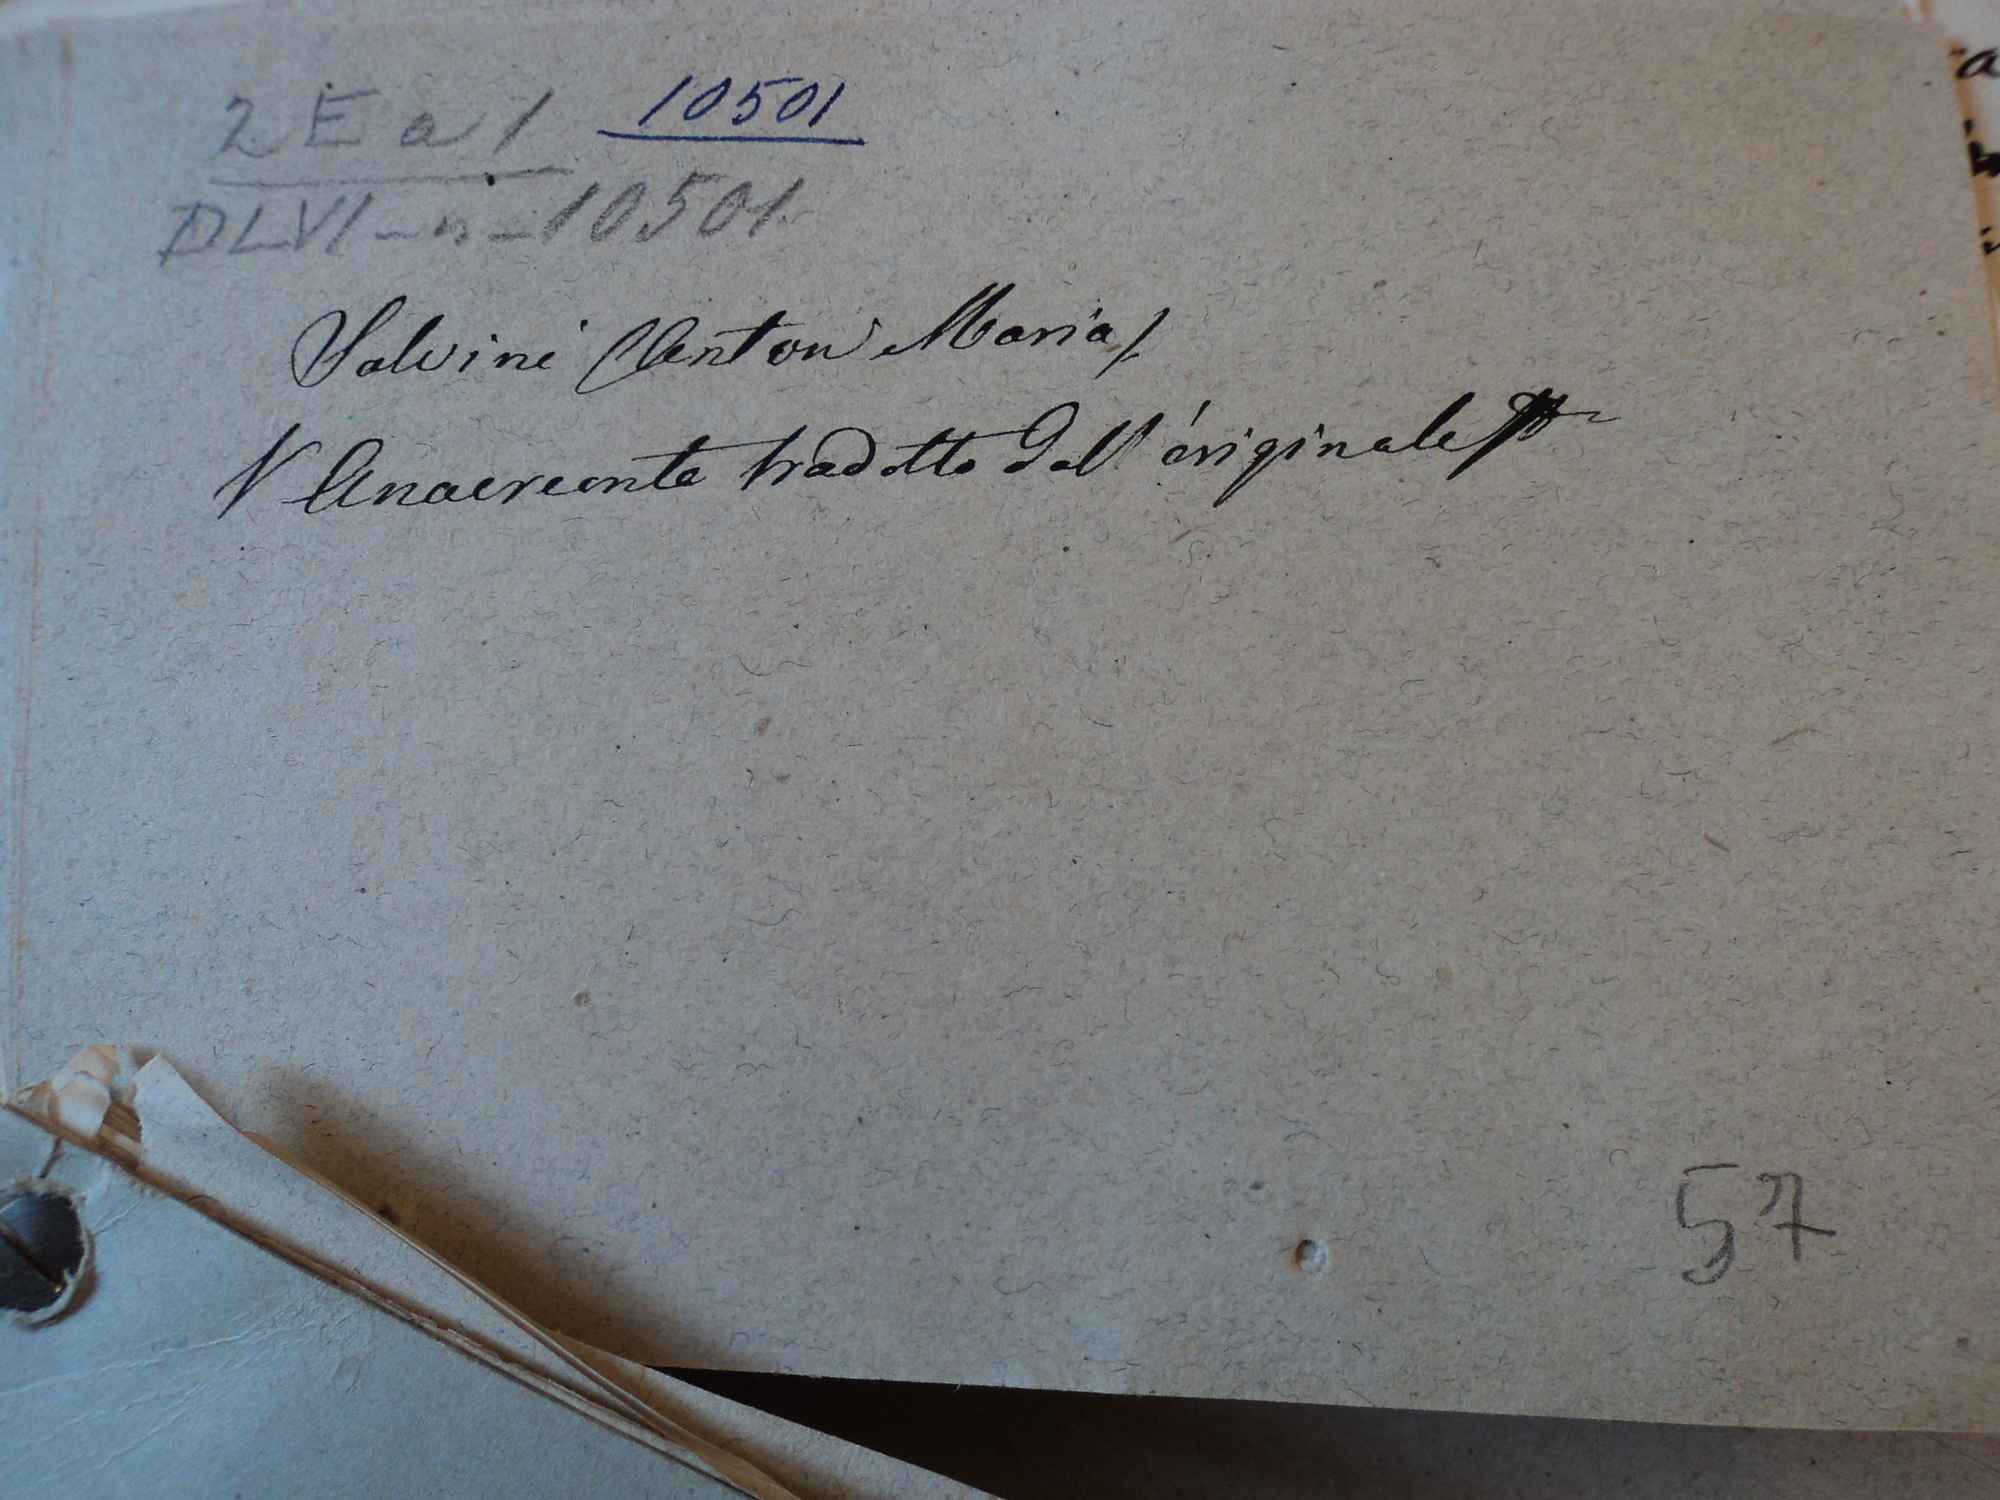 2 E a 1 10501
DLVI-n-10501
Salvini (Anton Maria)
V Anacreonte tradotto dall'originale
57